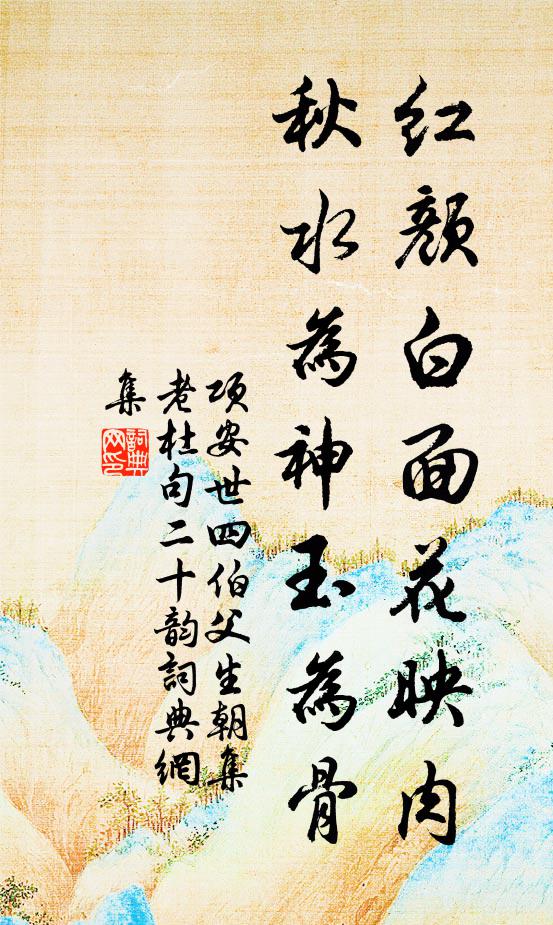 红颜白面花映肉
秋水為神玉為骨
项安世四伯父生朝集
老杜句二十韵詞典網
集
詞典网印